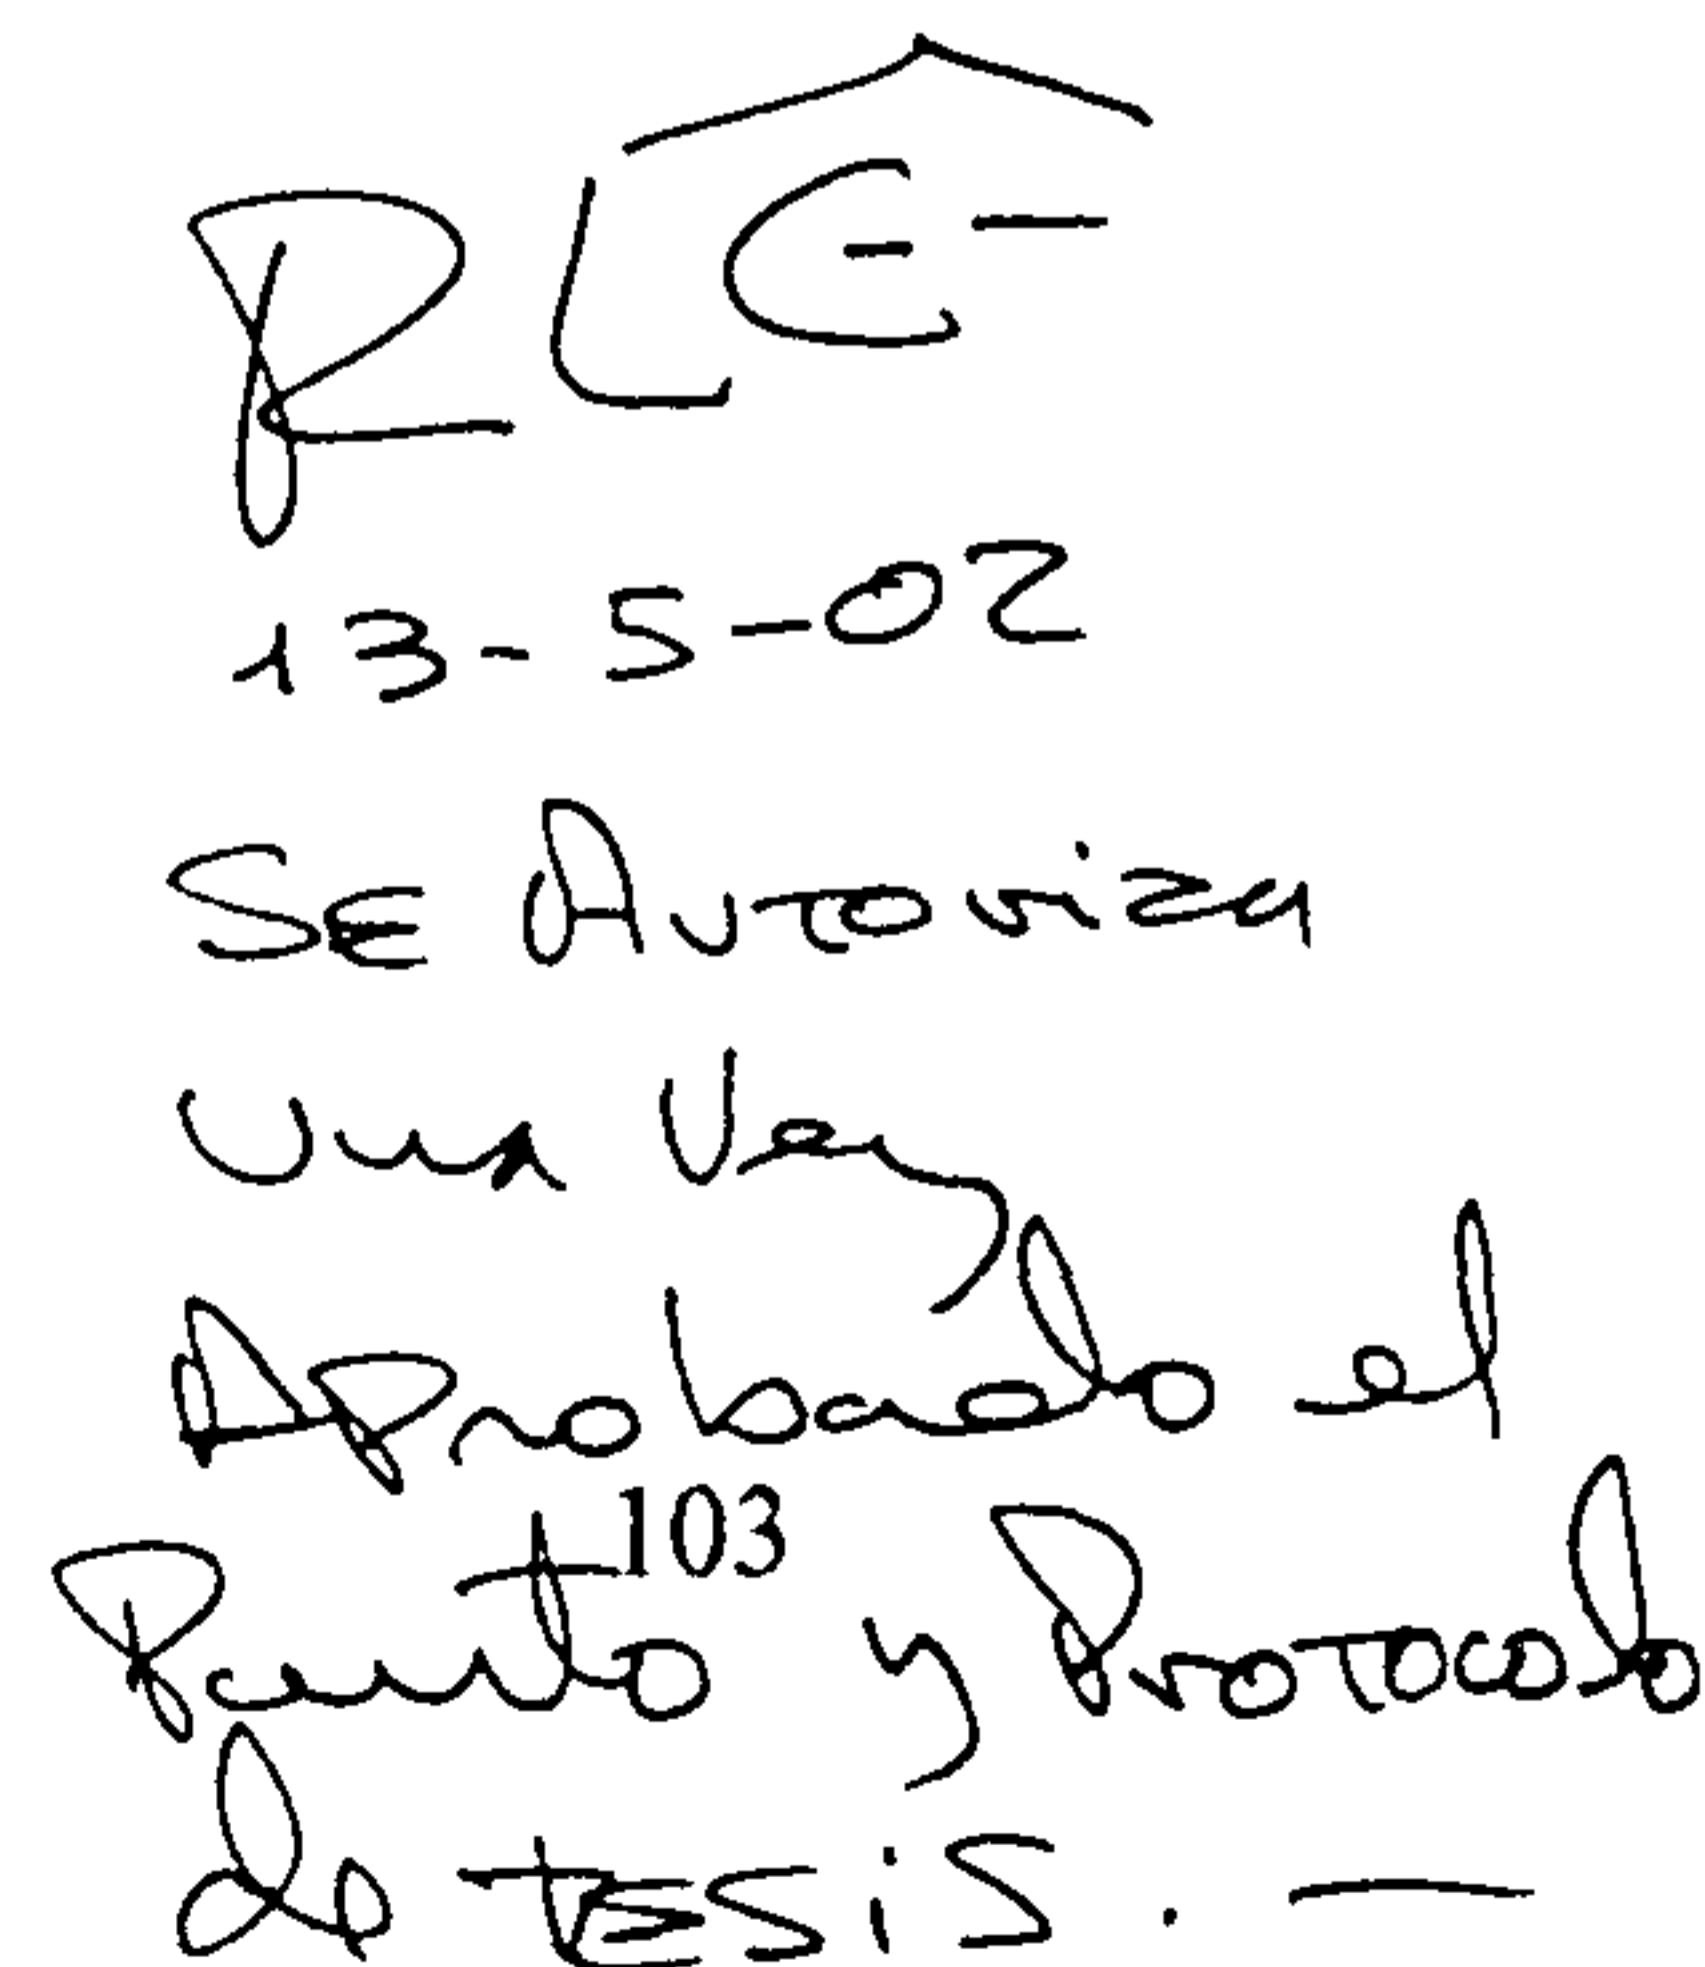 13-5-02
Se Autoriza
Una Vez
Aprobado el
103
Punto y Protocolo
de tesis. —